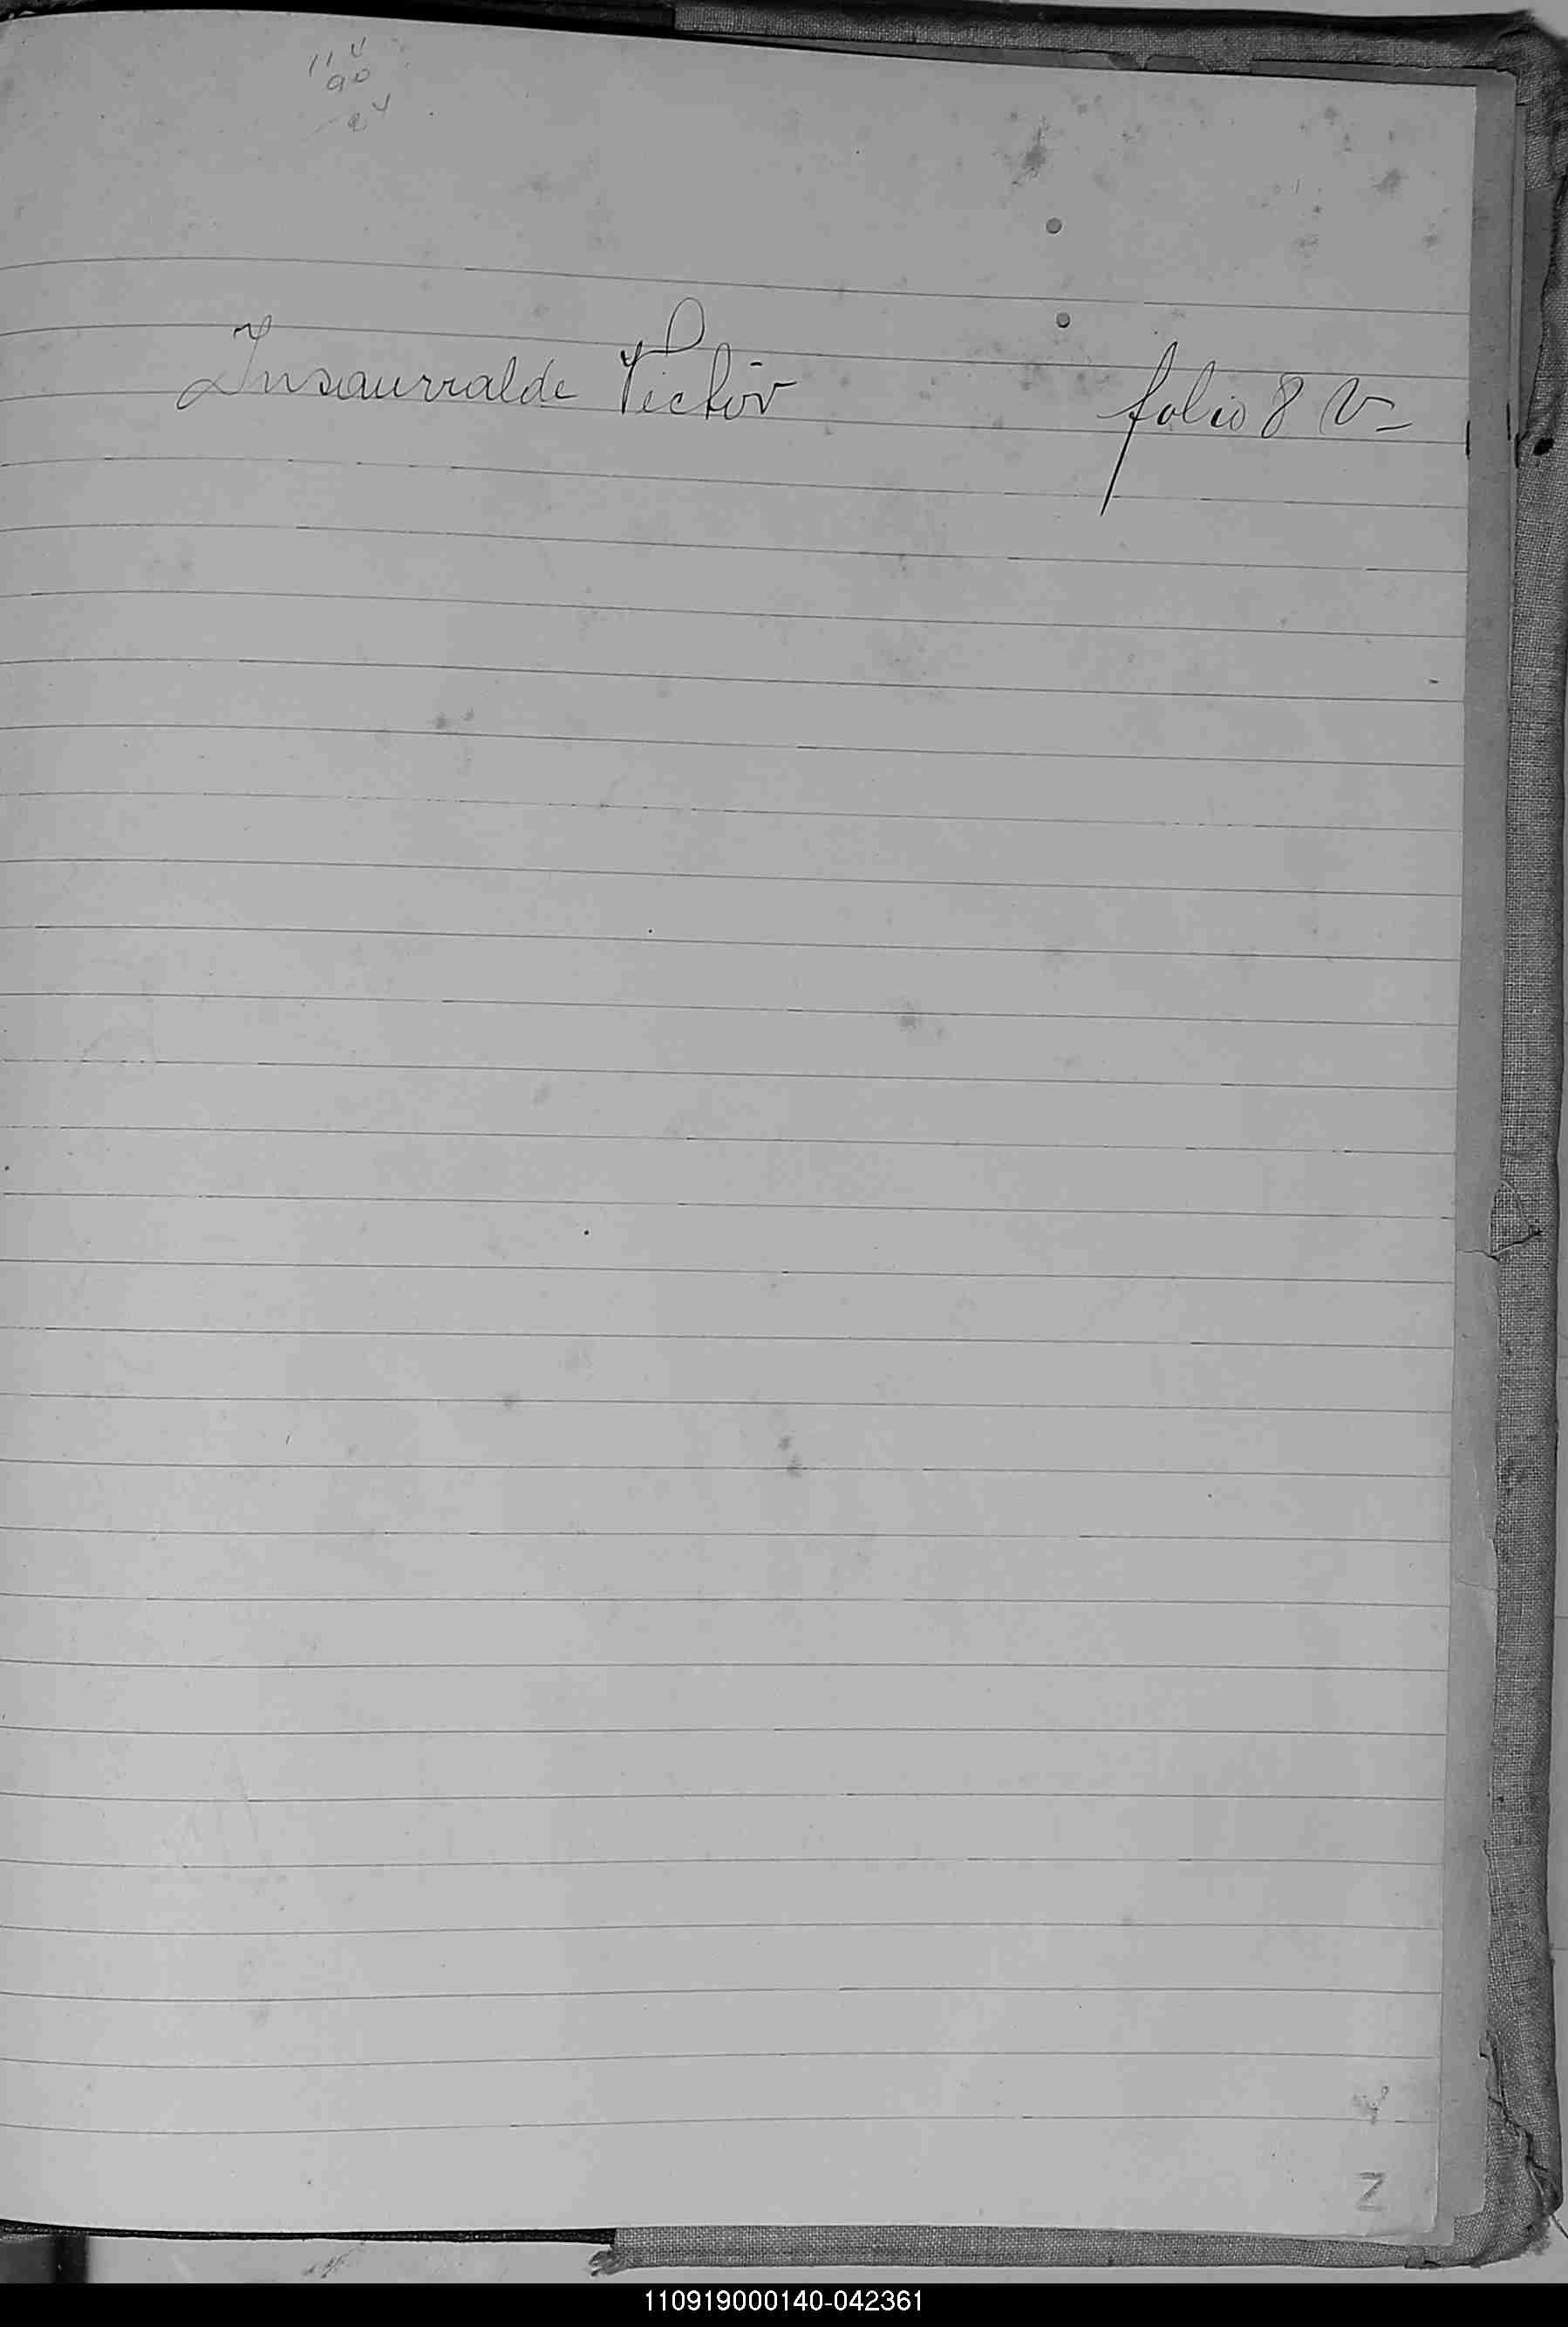 Insaurralde Victor folio 8 V-
Z
110919000140-042361